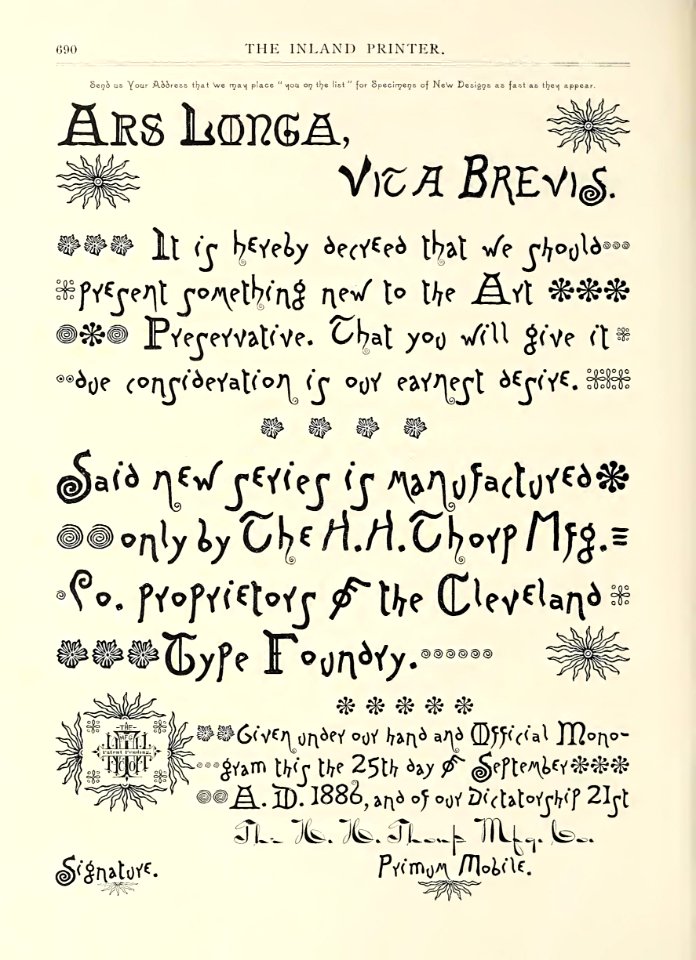 690
THE INLAND PRINTER.
Send us Your Address that we may place "you on the list" for Specimens of New Designs as fast as they appear.
Ars Longa,
Vita Brevis.
It is hereby decreed that we should
present something new to the Art
Preservative. That you will give it
due consideration is our earnest desire.
Said new series is manufactured
only by The H. H. Thorp Mfg.
Co. proprietors of the Cleveland
Type Foundry.
Given under our hand and Official Mono-
gram this the 25th day of September
A. D. 1886, and of our Dictatorship 21st
The H. H. Thorp Mfg. Co.
Signature.
Primum Mobile.
THE
Patent Pending.